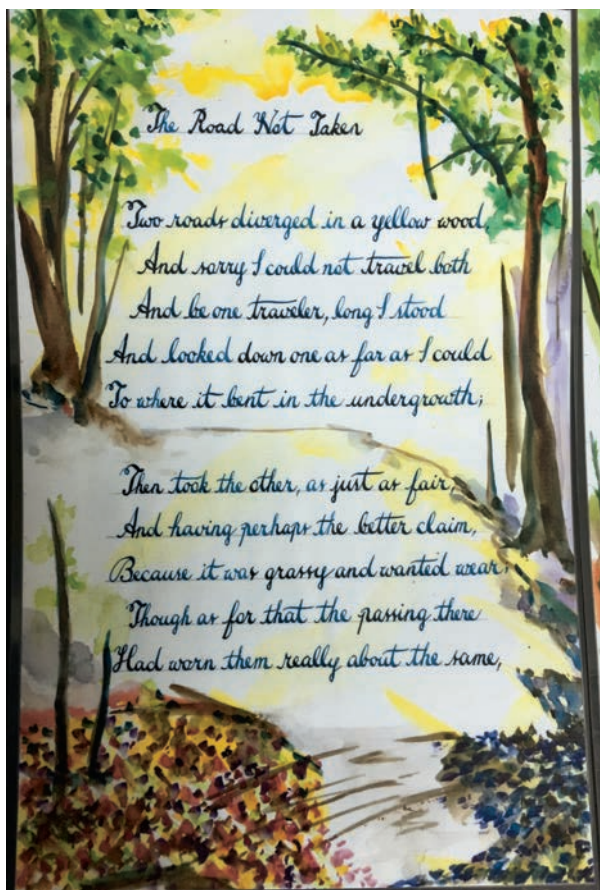 The Road Not Taken
Two roads diverged in a yellow wood,
And sorry I could not travel both
And be one traveler, long I stood
And looked down one as far as I could
To where it bent in the undergrowth;
Then took the other, as just as fair,
And having perhaps the better claim,
Because it was grassy and wanted wear;
Though as for that the passing there
Had worn them really about the same,